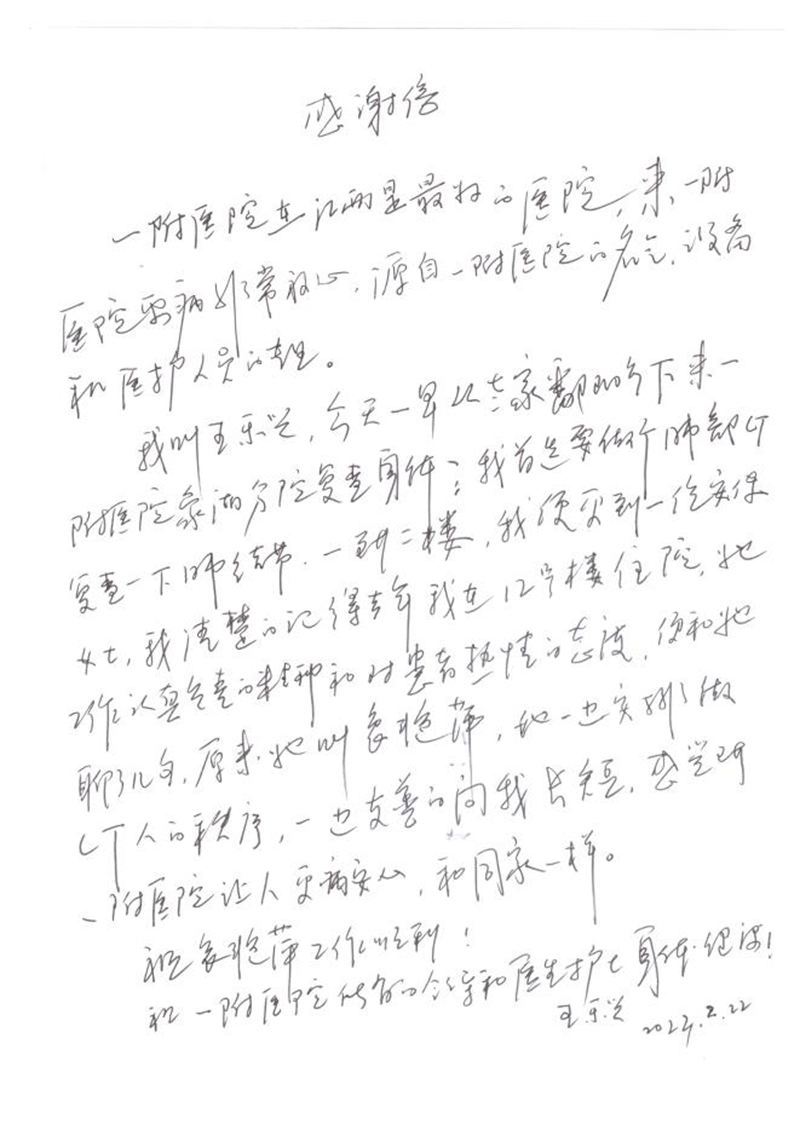 感谢信
一附医院在江西是最好的医院，来一附
医院看病非常放心，源自一附医院的名气、设备
和医护人员的素质。
我叫王乐兴，今天一早从老家鄱阳乡下来一
附医院象湖分院复查身体；我首先要做个肺部CT
复查一下肺结节。一到二楼，我便见到一位安保
女士，我清楚的记得去年我在12号楼住院，她
工作认真负责的精神和对患者热情的态度，便和她
聊了几句，原来她叫艳萍，她一边安排了做
CT人的秩序，一边友善的问我长短，感觉到
一附医院让人看病安心，和回家一样。
祝艳萍工作顺利！
祝一附医院所有的领导和医生护士身体健康！
王乐兴 2023.2.22